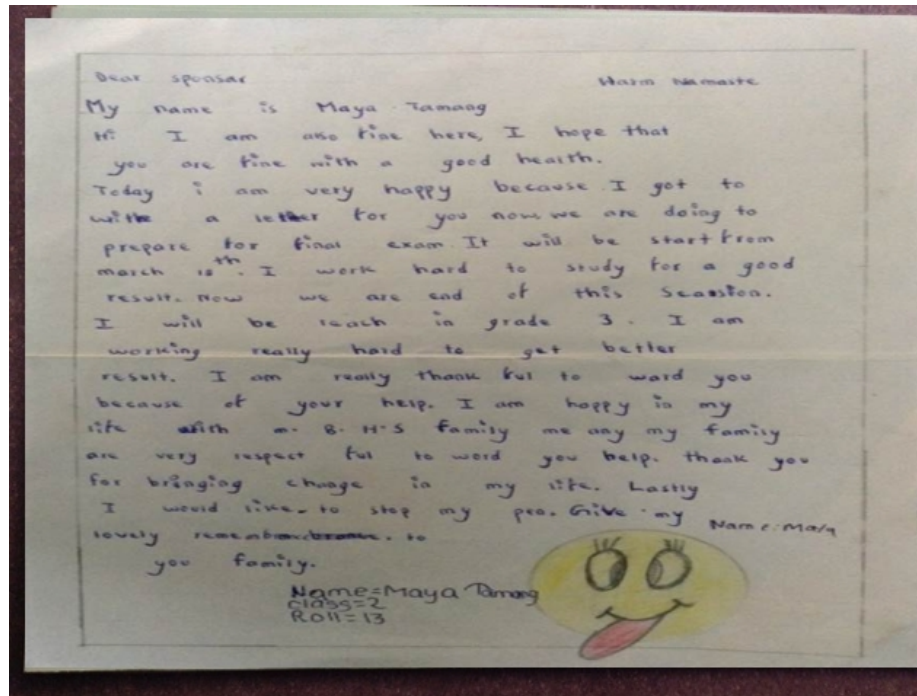 Dear sponsar Warm Namaste
My name is Maya Tamang
Hi I am also fine here, I hope that
you are fine with a good health.
Today i am very happy because I got to
write a letter for you now. we are doing to
prepare for final exam. It will be start from
march th. I work hard to study for a good
result. Now we are end of this
I will be reach in grade 3. I am
working really hard to get better
result. I am really thank ful to ward you
because of your help. I am happy in my
life with m. B. H.S family me any my family
are very respect ful to word you help. thank you
for bringing change in my life. Lastly
I would like to stop my pen. Give my
lovely to
you family.
Name: Maya
Name=Maya Tamang
class=2
Roll=13